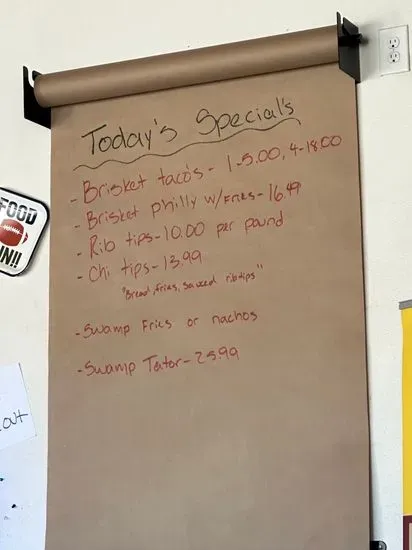 Today's Special's
- Brisket taco's - 1-5.00, 4-18.00
- Brisket philly w/Fries - 16.49
- Rib tips - 10.00 per pound
- Chi tips - 13.99
"Bread, fries, sauced ribtips"
- Swamp Fries or nachos
- Swamp Tator - 25.99
FOOD
IN!!
out